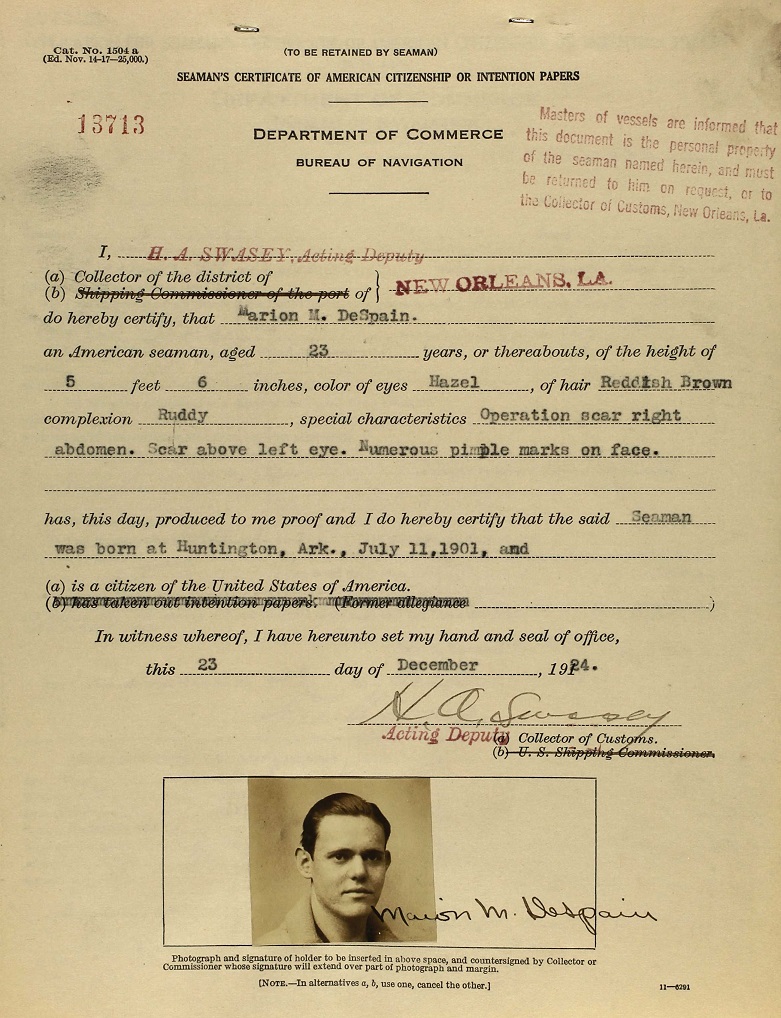 Cat. No. 1504 a
(Ed. Nov. 14-17—25,000.)
(TO BE RETAINED BY SEAMAN)
SEAMAN'S CERTIFICATE OF AMERICAN CITIZENSHIP OR INTENTION PAPERS
13713
DEPARTMENT OF COMMERCE
BUREAU OF NAVIGATION
Masters of vessels are informed that
this document is the personal property
of the seaman named herein, and must
be returned to him on request, or to
the Collector of Customs, New Orleans, La.
I, H. A. SWASEY, Acting Deputy
(a) Collector of the district of
(b) Shipping Commissioner of the port of } NEW ORLEANS, LA.
do hereby certify, that Marion M. DeSpain.
an American seaman, aged 23 years, or thereabouts, of the height of
5 feet 6 inches, color of eyes Hazel, of hair Reddish Brown
complexion Ruddy, special characteristics Operation scar right
abdomen. Scar above left eye. Numerous pimple marks on face.
has, this day, produced to me proof and I do hereby certify that the said Seaman
was born at Huntington, Ark., July 11,1901, and
(a) is a citizen of the United States of America.
(b) has taken out intention papers. (Former allegiance )
In witness whereof, I have hereunto set my hand and seal of office,
this 23 day of December, 1924.
H. A. Swasey
Acting Deputy (a) Collector of Customs.
(b) U. S. Shipping Commissioner.
Marion M. Despain
Photograph and signature of holder to be inserted in above space, and countersigned by Collector or
Commissioner whose signature will extend over part of photograph and margin.
[NOTE.—In alternatives a, b, use one, cancel the other.]
11—6291